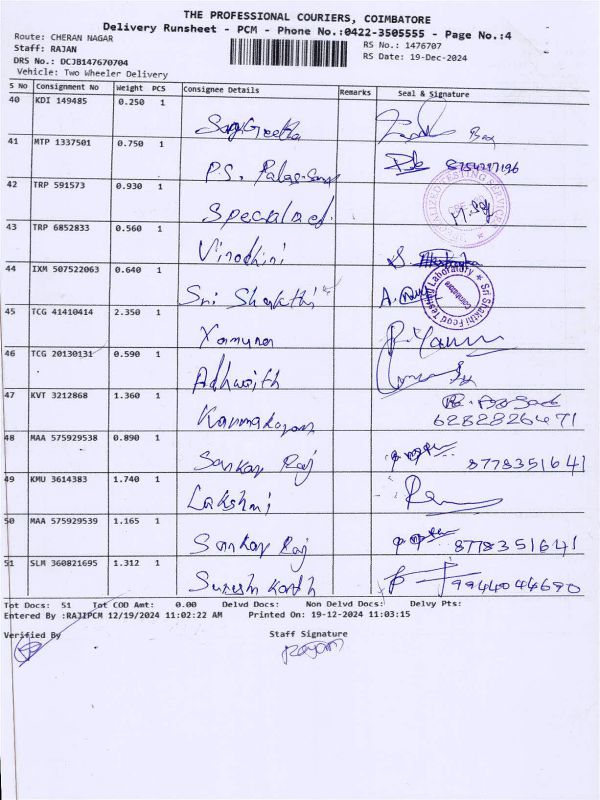 THE PROFESSIONAL COURIERS, COIMBATORE
Delivery Runsheet - PCM - Phone No.:0422-3505555 - Page No.:4
Route: CHERAN NAGAR
RS No.: 1476707
Staff: RAJAN
RS Date: 19-Dec-2024
DRS No.: DCJB147670704
Vehicle: Two Wheeler Delivery
S No Consignment No Weight PCS Consignee Details Remarks Seal & Signature
40 KDI 149485 0.250 1
41 MTP 1337501 0.750 1 P.S.
42 TRP 591573 0.930 1 Specialized
43 TRP 6852833 0.560 1 Virodhini
44 IXM 507522063 0.640 1 Sri Shakthi
Sri Shakthi Food Testing Laboratory
Coimbatore
45 TCG 41410414 2.350 1 Yamuna
46 TCG 20130131 0.590 1 Adhwith
47 KVT 3212868 1.360 1 6282826471
48 MAA 575929538 0.890 1 Sankar Raj 8778351641
49 KMU 3614383 1.740 1 Lakshmi
50 MAA 575929539 1.165 1 Sankar Raj 8778351641
51 SLM 360821695 1.312 1 Suresh 9944044690
Tot Docs: 51 Tot COD Amt: 0.00 Delvd Docs: Non Delvd Docs: Delvy Pts:
Entered By :RAJIPCM 12/19/2024 11:02:22 AM Printed On: 19-12-2024 11:03:15
Verified By Staff Signature